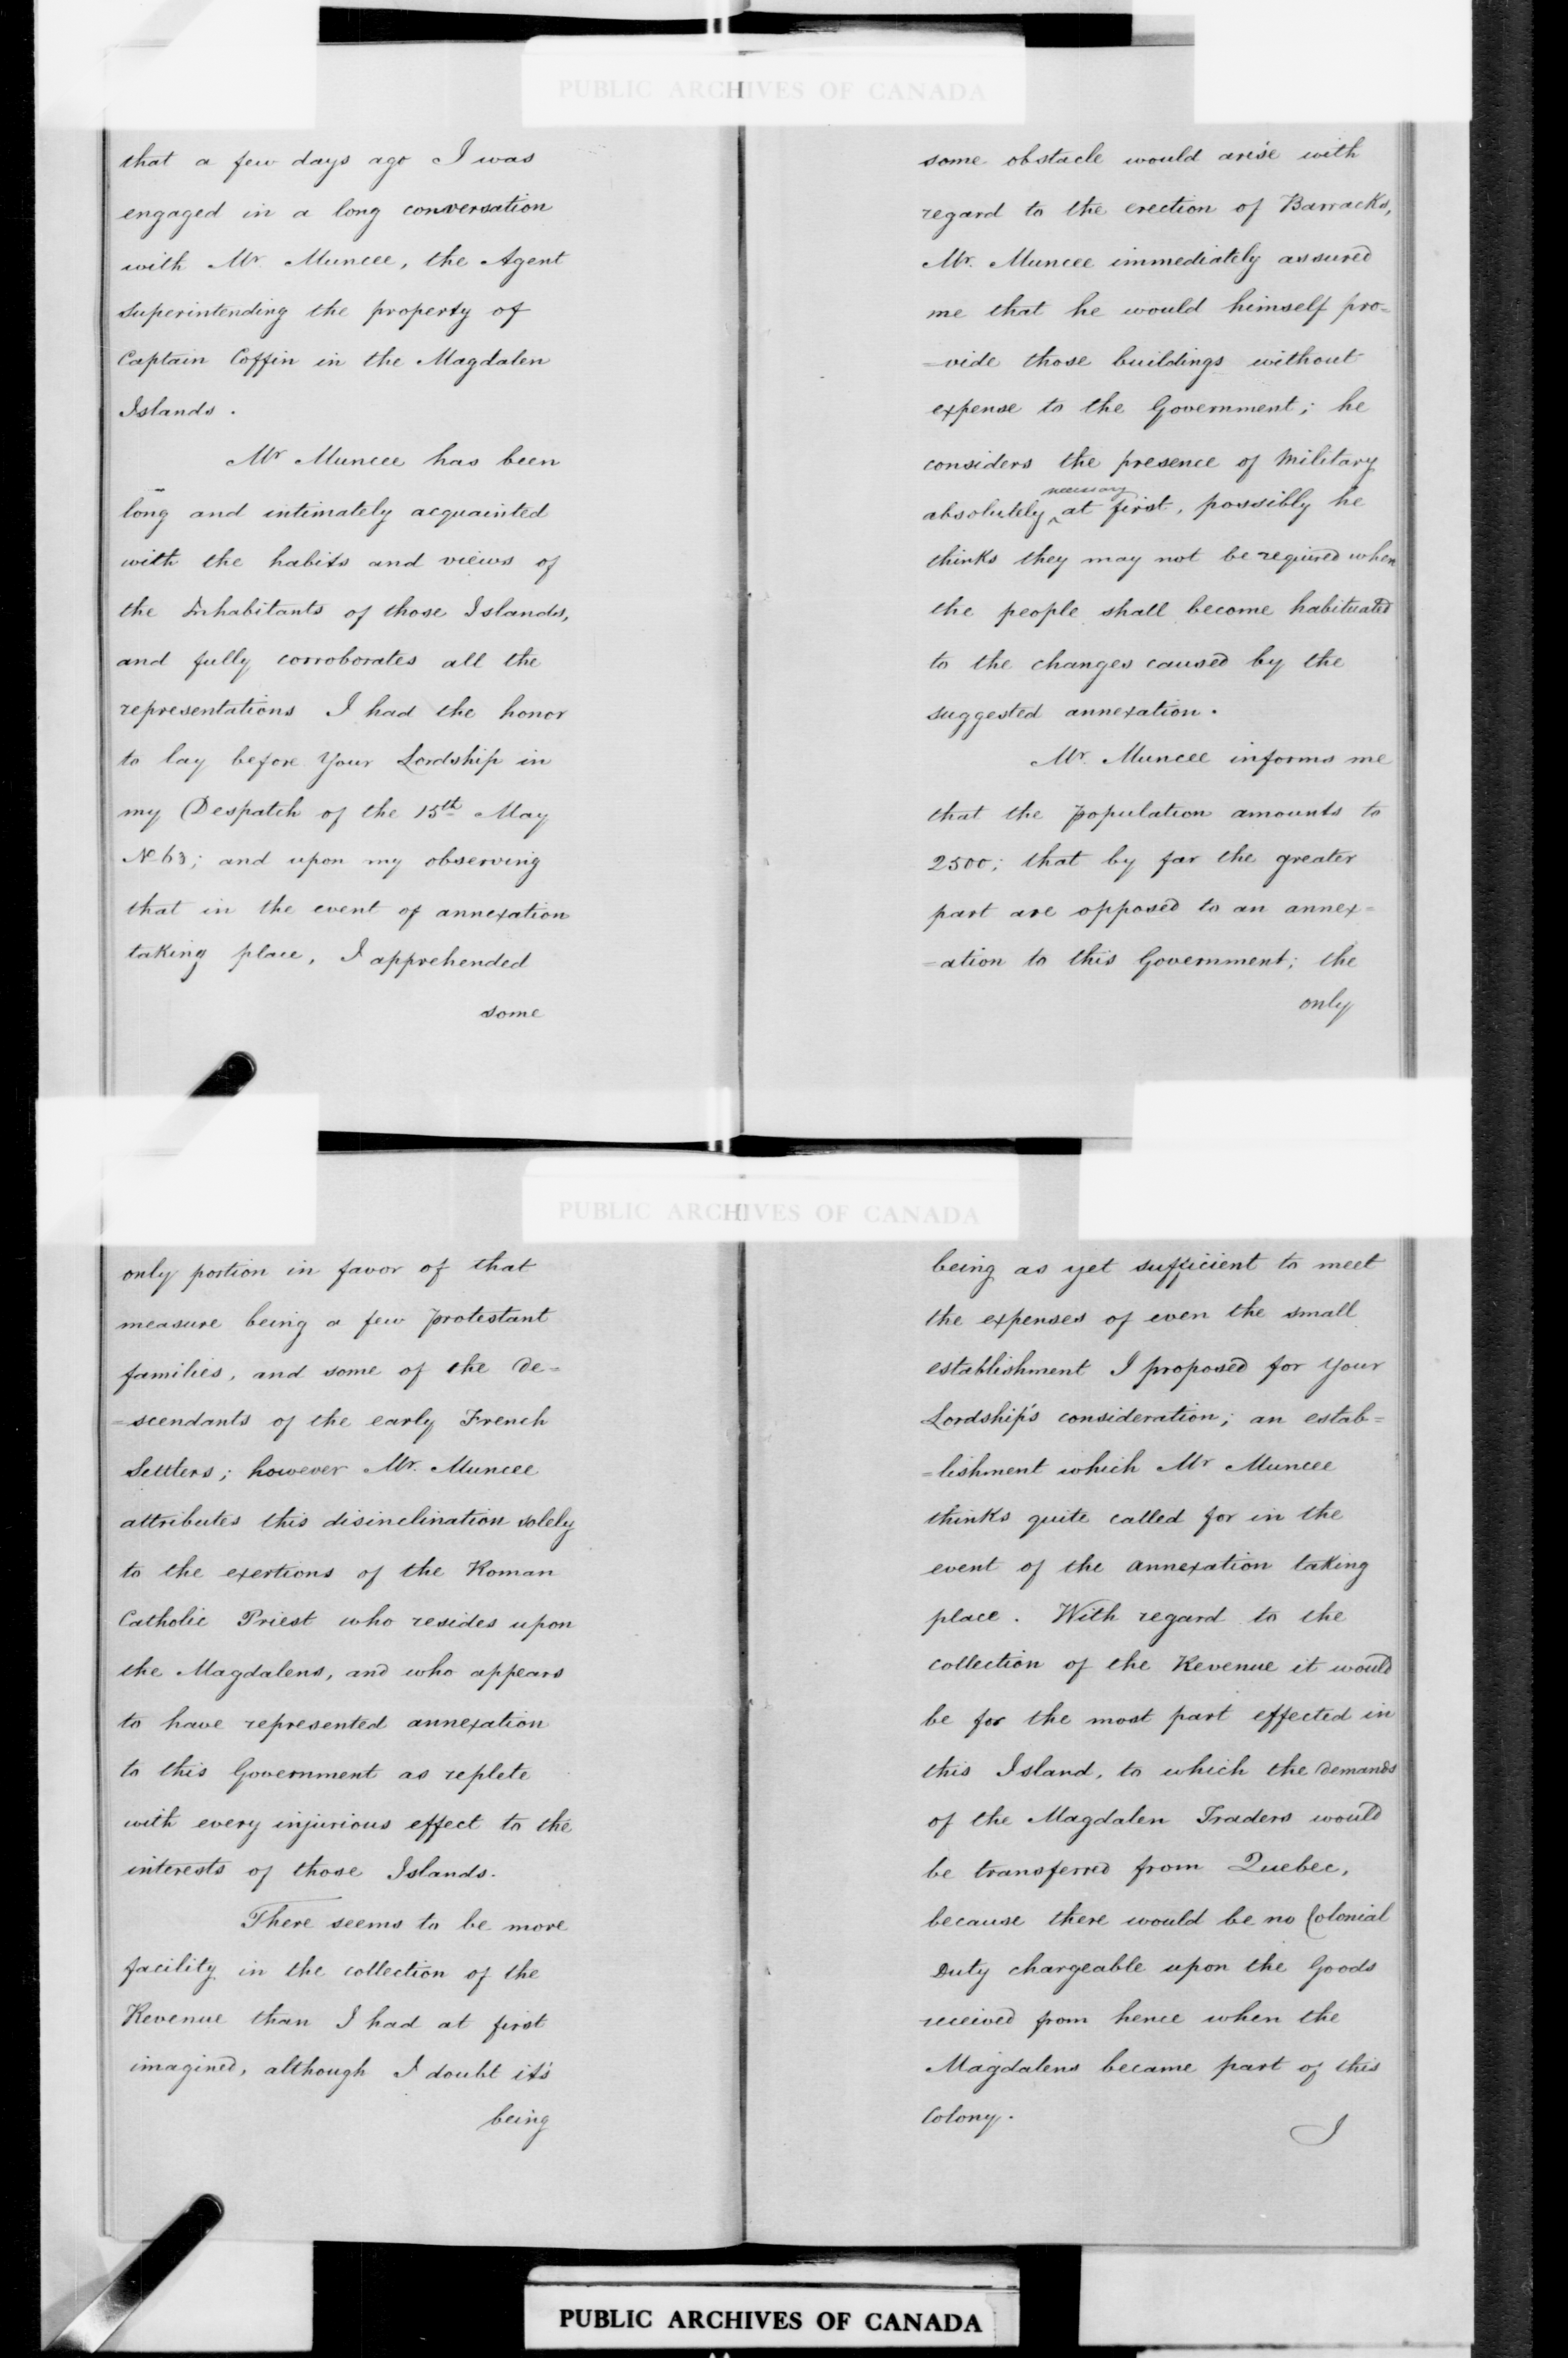 PUBLIC ARCHIVES OF CANADA
that a few days ago I was
engaged in a long conversation
with Mr. Muncee, the Agent
superintending the property of
Captain Coffin in the Magdalen
Islands.
Mr Muncee has been
long and intimately acquainted
with the habits and views of
the Inhabitants of those Islands,
and fully corroborates all the
representations I had the honor
to lay before Your Lordship in
my Despatch of the 15th May
No 63; and upon my observing
that in the event of annexation
taking place, I apprehended
some
some obstacle would arise with
regard to the erection of Barracks,
Mr. Muncee immediately assured
me that he would himself pro=
=vide those buildings without
expense to the Government; he
considers the presence of Military
absolutely necessary at first, possibly he
thinks they may not be required when
the people shall become habituated
to the changes caused by the
suggested annexation.
Mr. Muncee informs me
that the population amounts to
2500; that by far the greater
part are opposed to an annex=
=ation to this Government; the
only
PUBLIC ARCHIVES OF CANADA
only portion in favor of that
measure being a few protestant
families, and some of the de=
=scendants of the early French
Settlers; however Mr. Muncee
attributes this disinclination solely
to the exertions of the Roman
Catholic Priest who resides upon
the Magdalens, and who appears
to have represented annexation
to this Government as replete
with every injurious effect to the
interests of those Islands.
There seems to be more
facility in the collection of the
Revenue than I had at first
imagined, although I doubt it's
being
being as yet sufficient to meet
the expenses of even the small
establishment I proposed for Your
Lordship's consideration; an estab=
=lishment which Mr Muncee
thinks quite called for in the
event of the annexation taking
place. With regard to the
collection of the Revenue it would
be for the most part effected in
this Island, to which the demands
of the Magdalen Traders would
be transferred from Quebec,
because there would be no Colonial
Duty chargeable upon the Goods
received from hence when the
Magdalens became part of this
Colony.
I
PUBLIC ARCHIVES OF CANADA